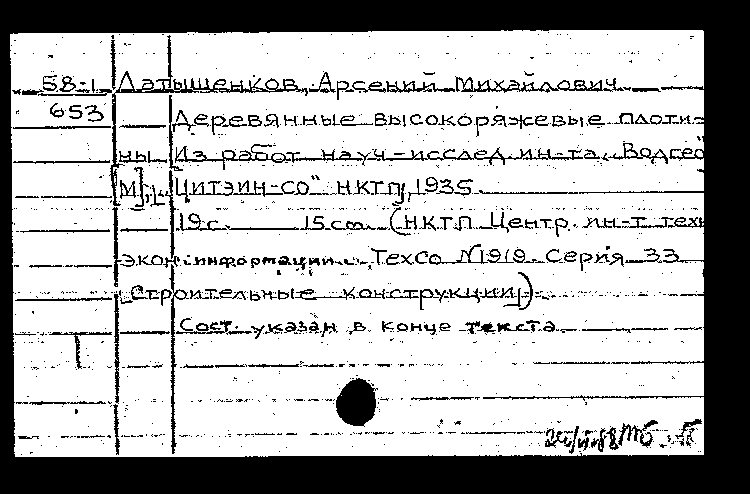 58-1 Латышенков, Арсений Михайлович
653 Деревянные высокоряжевые плоти-
ны. Из работ науч-исслед. ин-та „Водгео"
[М], „Цитэин-со" НКТП, 1935.
19с. 15см. (НКТП Центр. ин-т техн
экон. информации. ТехСо N1919. Серия 33
"Строительные конструкции")
Сост. указан в конце текста